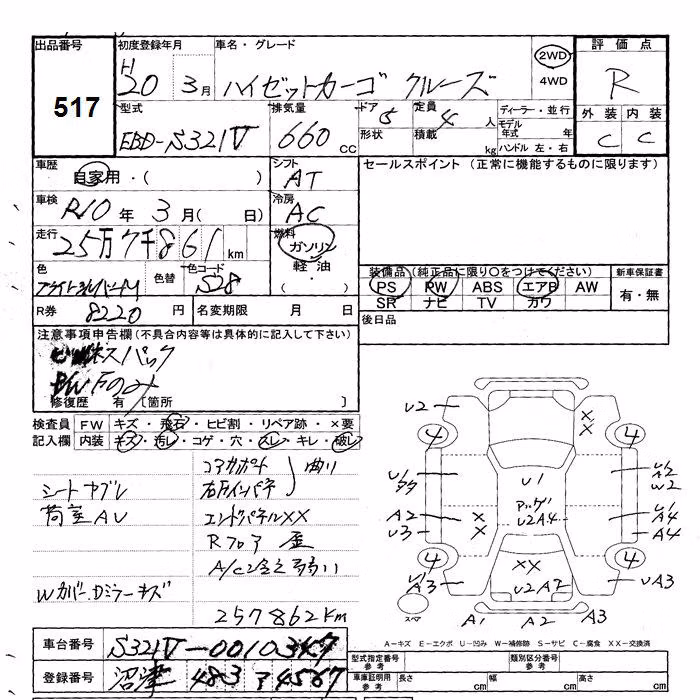 出品番号 初度登録年月 車名・グレード 2WD 4WD 評価点
517
H20 3月 ハイゼットカーゴ クルーズ R
型式 排気量 ドア 5 定員 4人 ディーラー・並行 外装 内装
EBD-S321V 660cc 形状 積載 kg モデル年式 年 ハンドル 左・右 C C
車歴 自家用・( ) シフト AT セールスポイント (正常に機能するものに限ります)
車検 R10年3月( 日) 冷房 AC
走行 25万7千861km 燃料 ガソリン 軽油・
色 色替 色コード S28 装備品(純正品に限り○をつけてください) 新車保証書
PS PW ABS エアB AW 有・無
SR ナビ TV カワ
R券 8220円 名変期限 月 日 後日品
注意事項申告欄(不具合内容等は具体的に記入して下さい)
ビジネスパック
PW Fのみ
修復歴 有 〔箇所 〕
検査員 FW キズ・飛石・ヒビ割・リペア跡・×要
記入欄 内装 キズ・汚レ・コゲ・穴・スレ・キレ・破レ
コアサポート 曲り
シートヤブレ 右Fインパネ
荷室AU エンドパネルXX
Rフロア 歪
A/Cンさえ弱い
Wカバー、Dミラーキズ
257862Km
U2 X X
4 4
U1 U1 A2 W2
パックドア
A2 U3 X X U2A4 U1 A4 A4
4 4
U1 A3 XX U2A2 UA3
スペア A1 A2 A3
A-キズ E-エクボ U-凹み W-補修跡 S-サビ C-腐食 XX-交換済
車台番号 S321V-0010347
型式指定番号 参考 類別区分番号 参考
登録番号 沼津 483 ア 4567
車庫証明用 参考 長さ cm 幅 cm 高さ cm